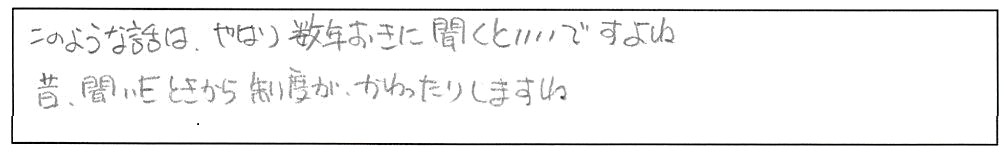 このような話は、やはり数年おきに聞くといいですよね
昔、聞いたときから制度が、かわったりしますね